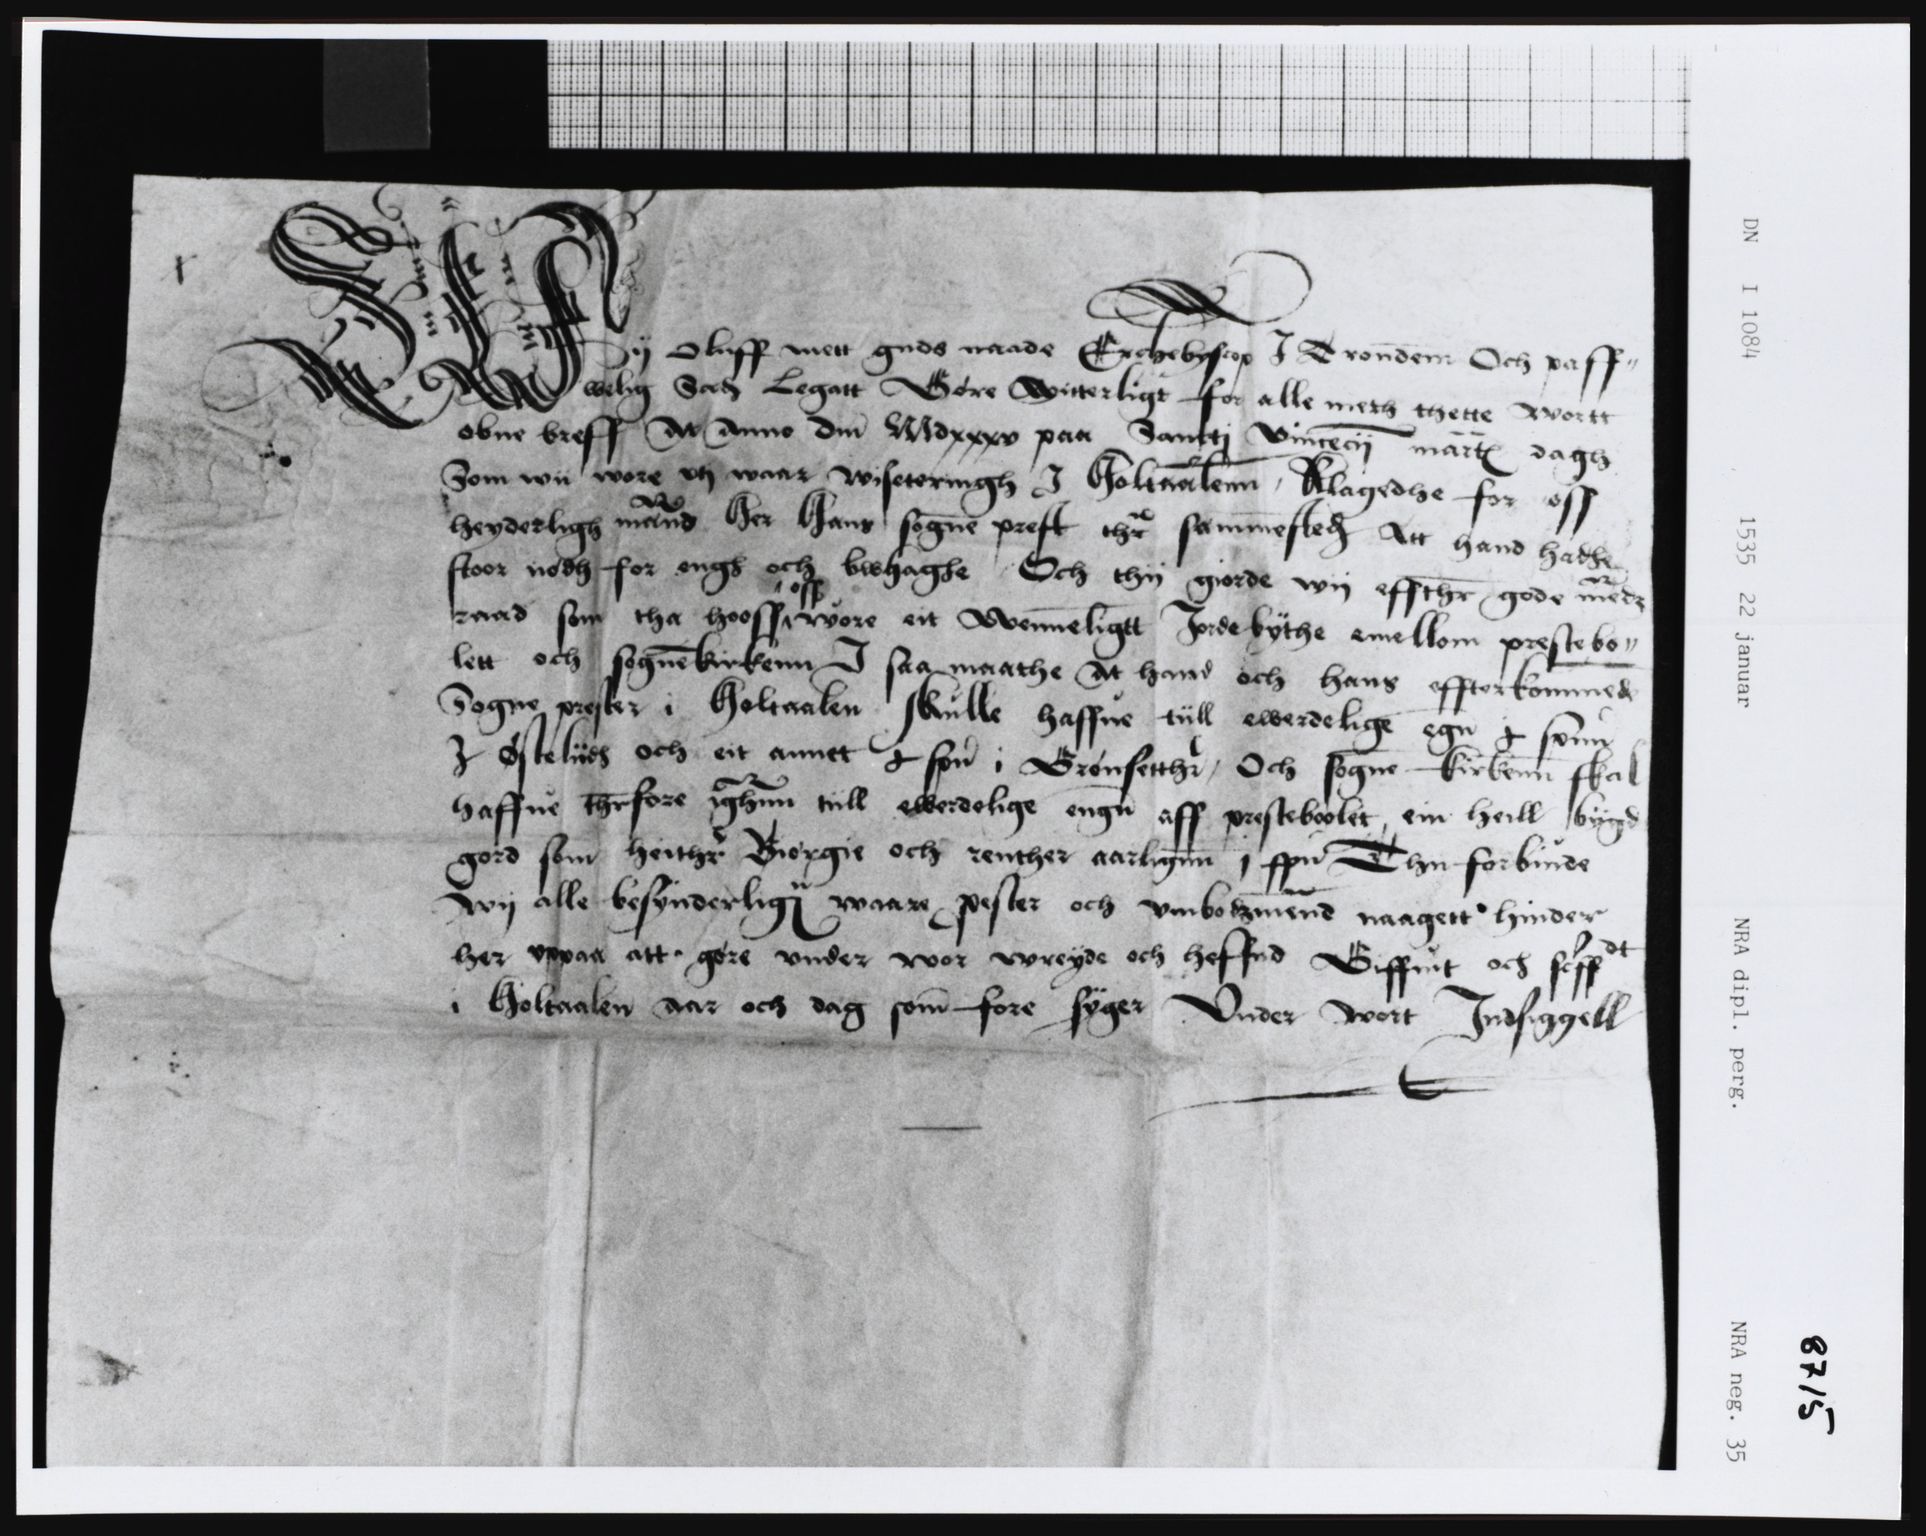 Wij Oluff mett guds naade Erchebyscop I Trondem Och paff„
welig Sædz Legatt Gøre Witterligt for alle meth thette wortt
obne breff At Anno dni Mdxxxv paa Sancti Vincecij martr dagh
Som wii wore vtj waar wiseteringh I Holtaalenn, Klagedhe for oss
heyderligh mand Her Hans sogne prest thr sammestedz Att hand hadhe
stoor nødh for engh och bwhaghe Och thij giorde wij effthr gode mendz
raad som tha hooss oss wore eit Wenneligtt Jordebythe emellom prestebo„
lett och sognekirkenn I saa maathe At hand och hans effterkommede
Sogne prester i Holtaalen skulle haffue tiill ewerdelige egn spnn
I Østeliidh och eit annet spn i Grønsetthr, Och sogne kirkenn skal
haffue thrfore ighenn tiill ewerdelige engn aff presteboolet, ein heill bygd
gord som heithr Biørgie och renther aarligenn j spn Thii forbiude
wij alle besynderligen waare pester och vmbodzmend naagett hinder
her vppaa att gøre vnder wor wreyde och heffnd Giffuit och scriffdt
i Holtaalen aar och dag som fore syger Vnder wort Indsiggell
DN I 1084
1535 22 januar
NRA dipl. perg.
NRA neg. 35
87/5